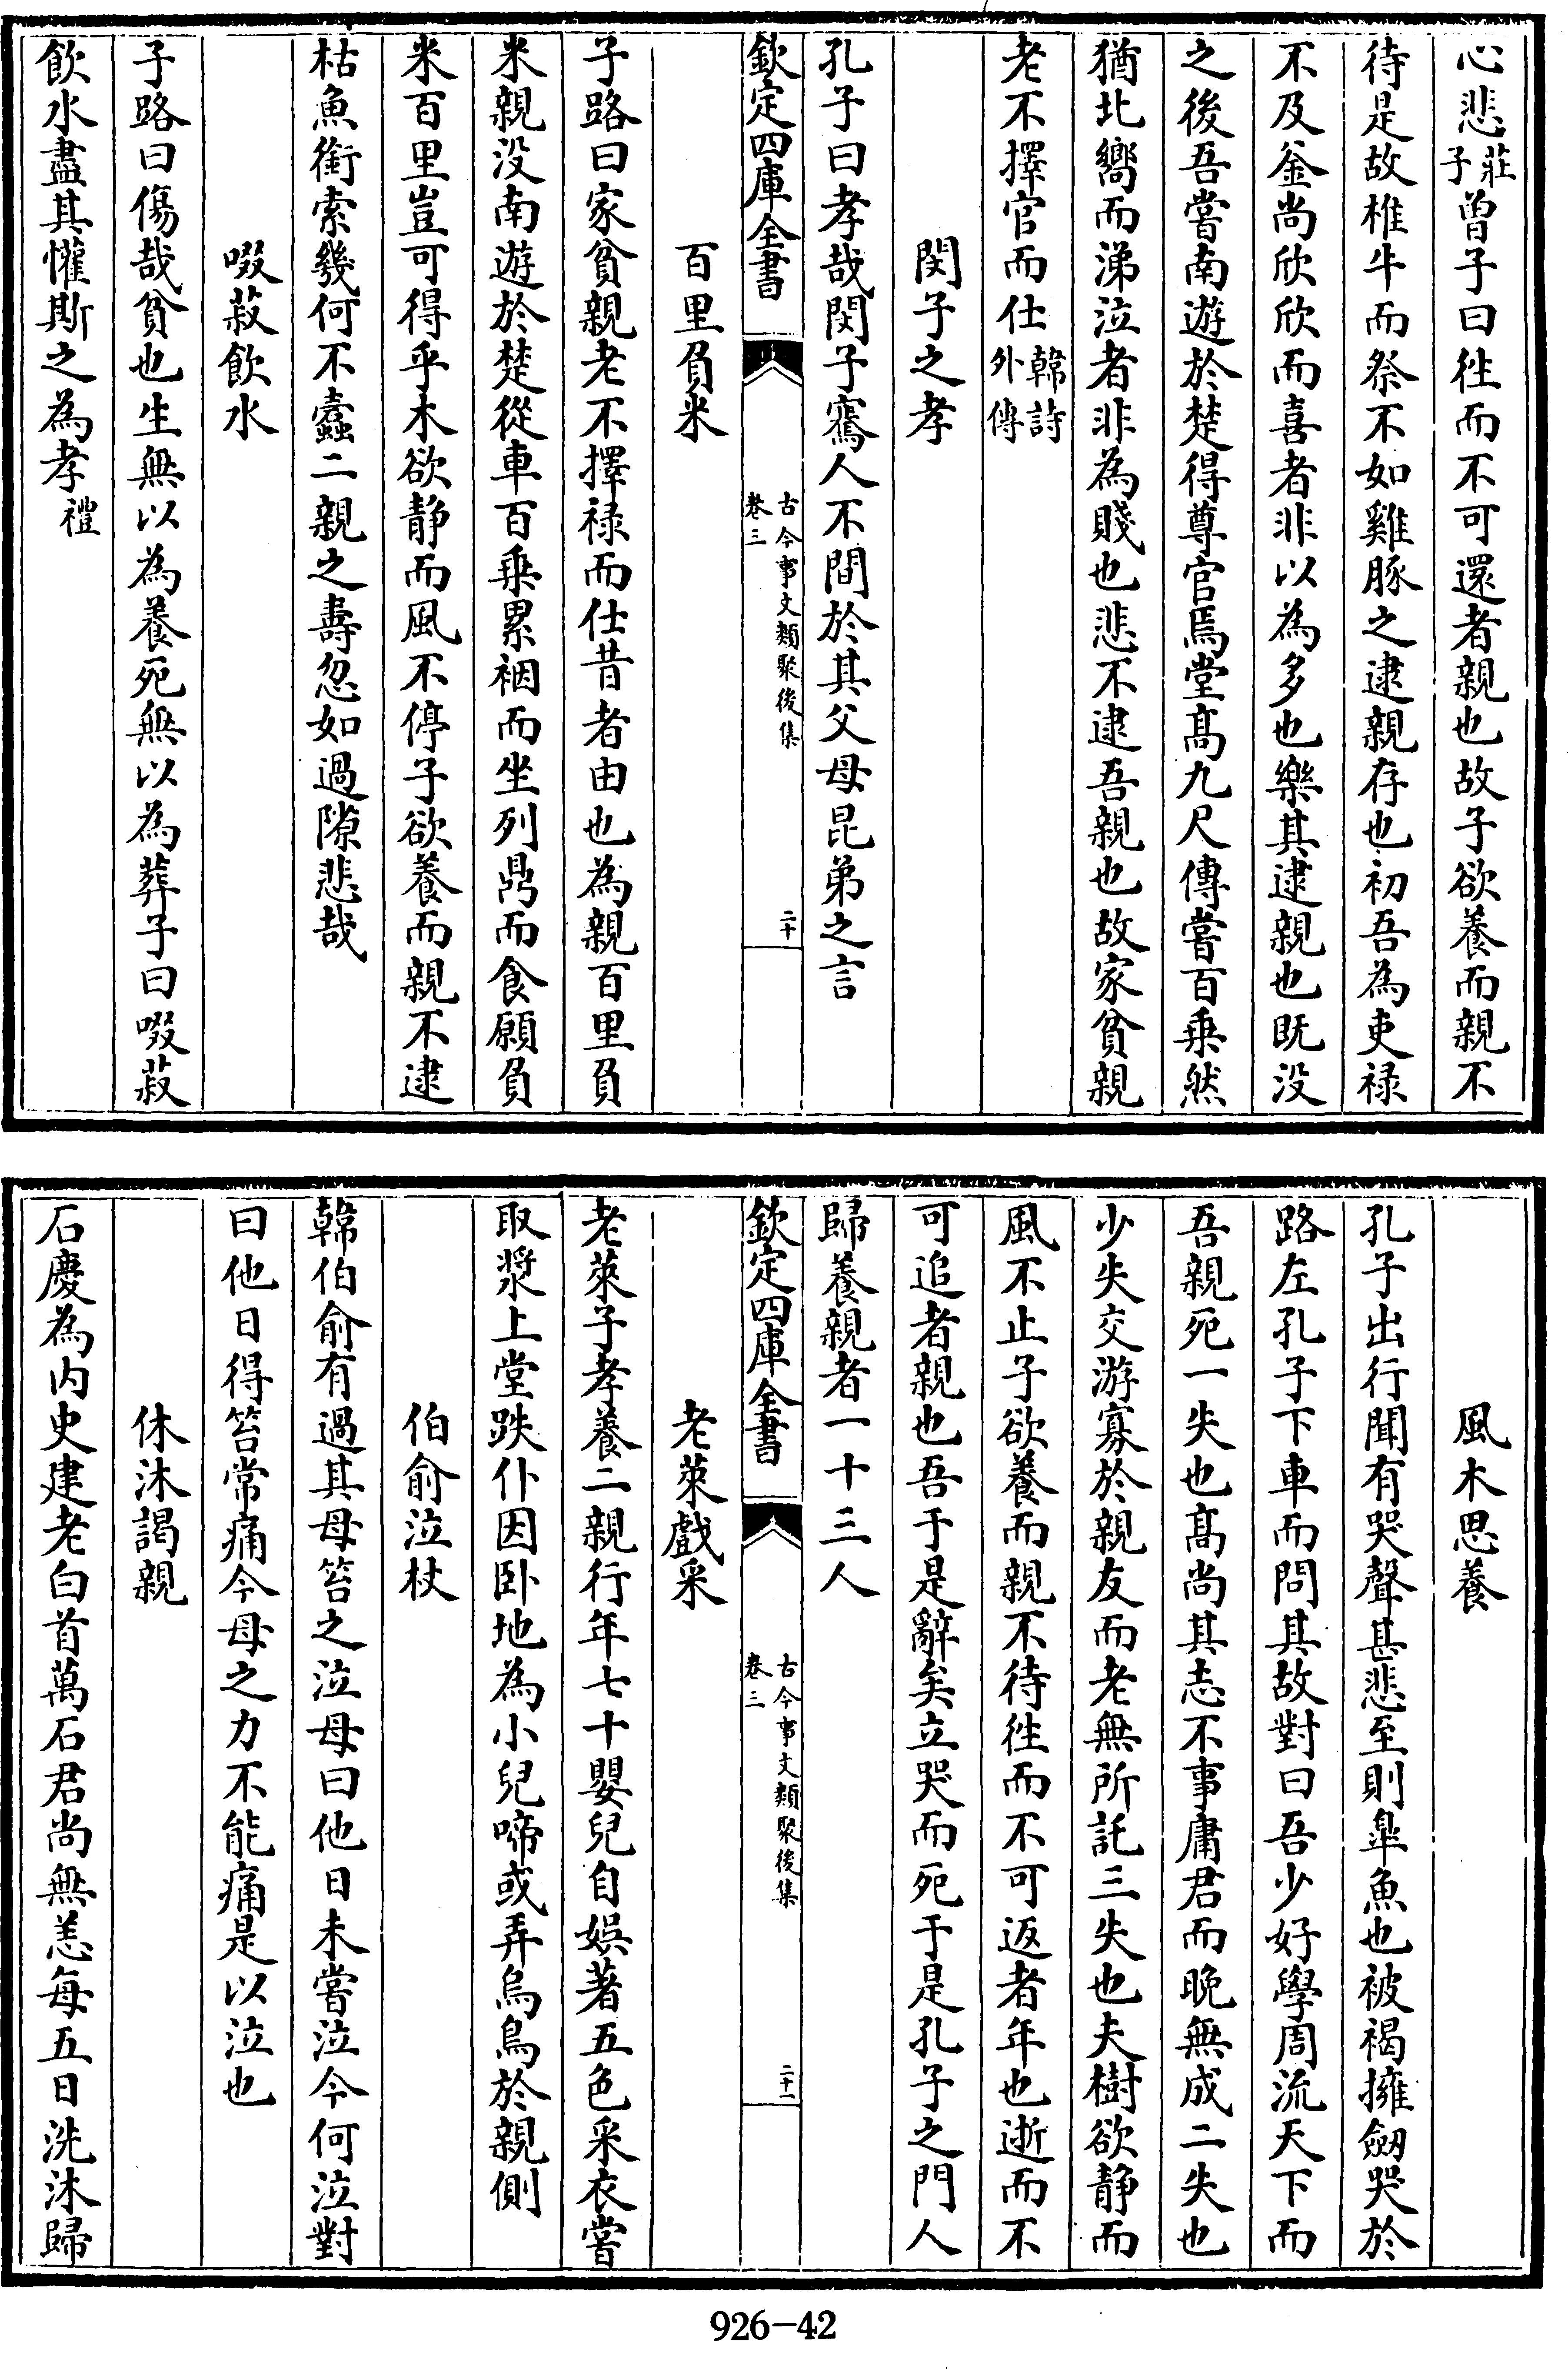 心悲莊子曾子曰徃而不可還者親也故子欲養而親不
待是故椎牛而祭不如雞豚之逮親存也初吾為吏禄
不及釜尚欣欣而喜者非以為多也樂其逮親也既没
之後吾嘗南遊於楚得尊官焉堂髙九尺傳嘗百乗然
猶北嚮而涕泣者非為賤也悲不逮吾親也故家貧親
老不擇官而仕韓詩外傳
閔子之孝
孔子曰孝哉閔子騫人不間於其父母昆弟之言
欽定四庫全書
古今事文類聚後集
卷三
二十
百里負米
子路曰家貧親老不擇禄而仕昔者由也為親百里負
米親没南遊於楚從車百乗累裀而坐列鼎而食願負
米百里豈可得乎木欲静而風不停子欲養而親不逮
枯魚銜索幾何不蠹二親之壽忽如過隙悲哉
啜菽飲水
子路曰傷哉貧也生無以為養死無以為葬子曰啜菽
飲水盡其懽斯之為孝禮
風木思養
孔子出行聞有哭聲甚悲至則臯魚也被褐擁劒哭於
路左孔子下車而問其故對曰吾少好學周流天下而
吾親死一失也髙尚其志不事庸君而晚無成二失也
少失交游寡於親友而老無所託三失也夫樹欲静而
風不止子欲養而親不待徃而不可返者年也逝而不
可追者親也吾于是辭矣立哭而死于是孔子之門人
歸養親者一十三人
欽定四庫全書
古今事文類聚後集
卷三
二十一
老萊戲采
老萊子孝養二親行年七十嬰兒自娯著五色采衣嘗
取漿上堂跌仆因卧地為小兒啼或弄烏鳥於親側
伯俞泣杖
韓伯俞有過其母笞之泣母曰他日未嘗泣今何泣對
曰他日得笞常痛今母之力不能痛是以泣也
休沐謁親
石慶為内史建老白首萬石君尚無恙每五日洗沐歸
926-42